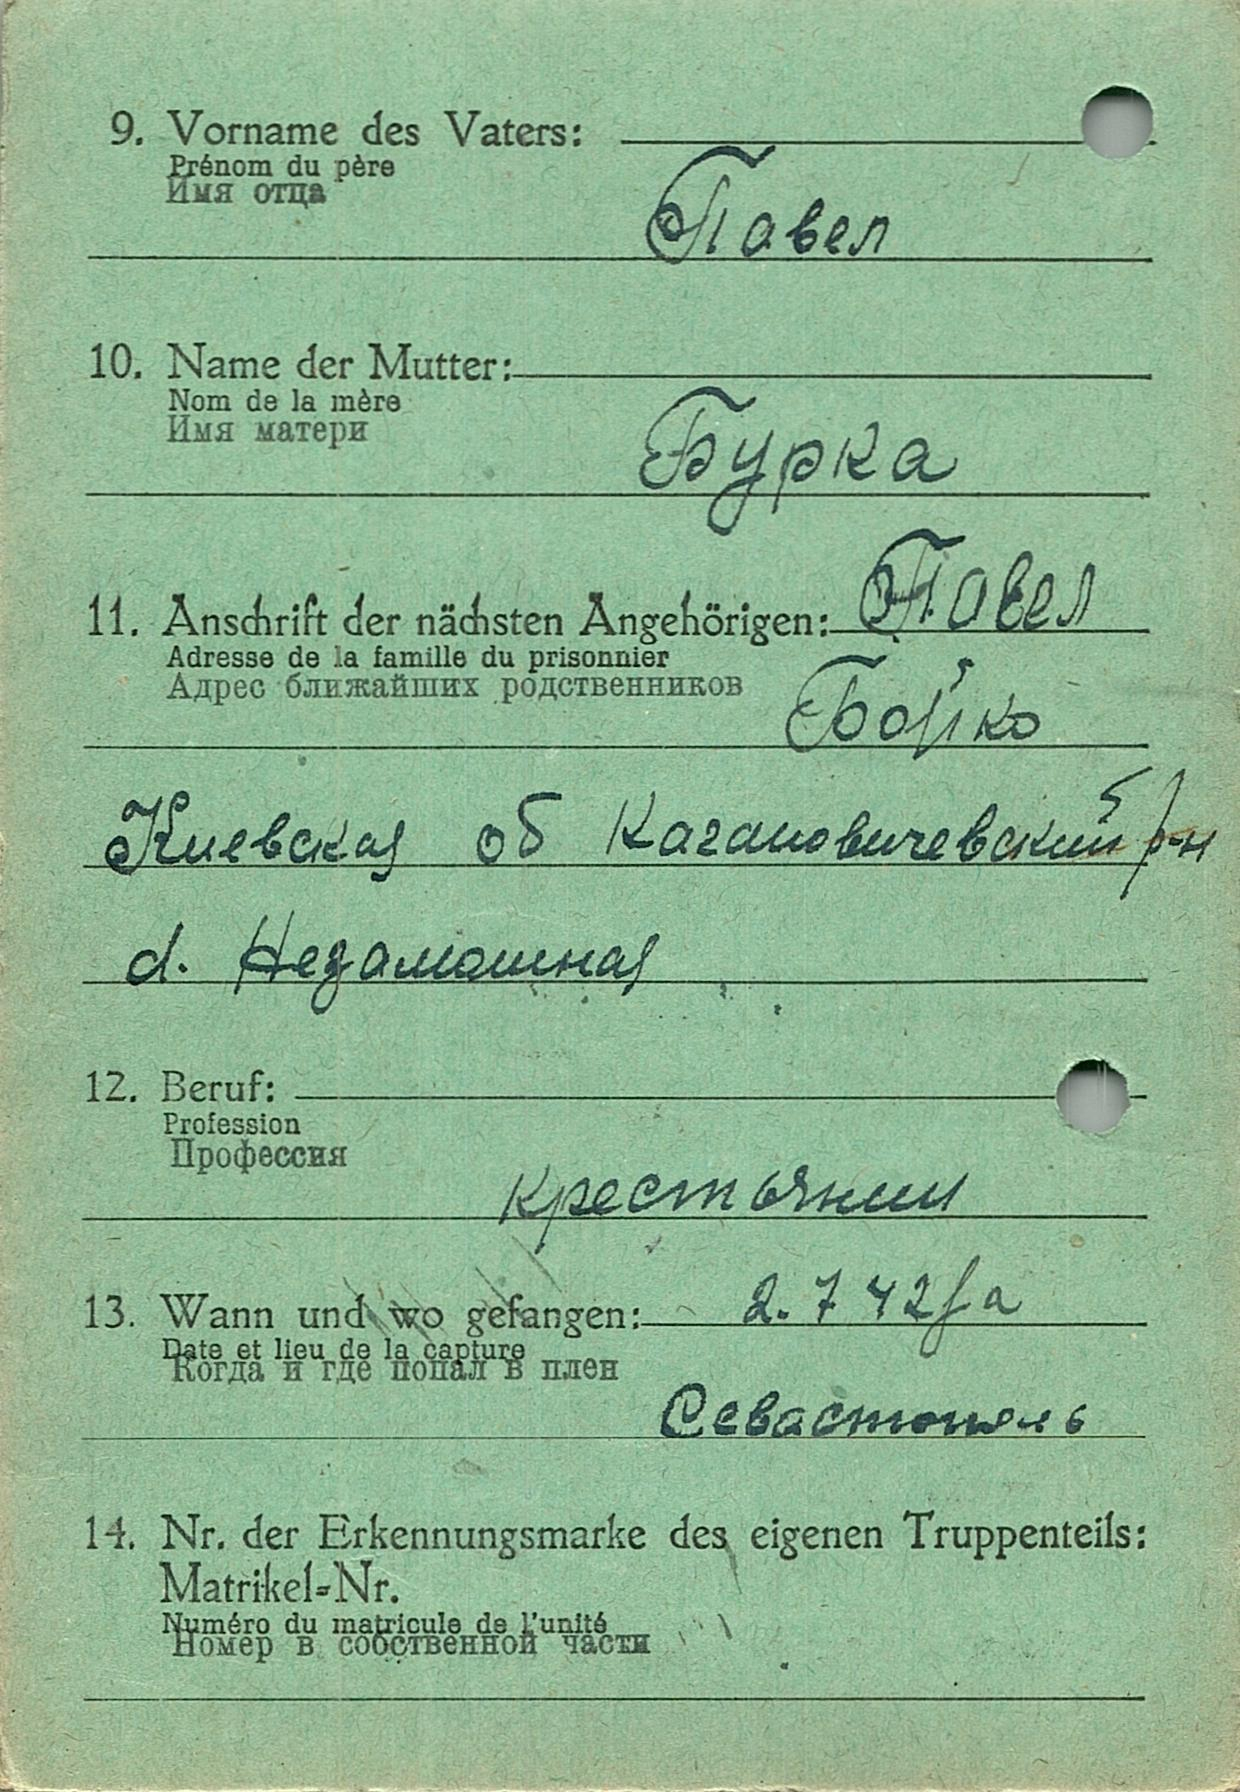 9. Vorname des Vaters:
Prénom du père
Имя отца
Павел
10. Name der Mutter:
Nom de la mère
Имя матери
Бурка
11. Anschrift der nächsten Angehörigen: Павел
Adresse de la famille du prisonnier
Адрес ближайших родственников
Бойко
Киевская об Кагановичевский р-н
d. Недамошная
12. Beruf:
Profession
Профессия
крестьянин
13. Wann und wo gefangen: 2.7 42
Date et lieu de la capture
Когда и где попал в плен
Севастополь
14. Nr. der Erkennungsmarke des eigenen Truppenteils:
Matrikel-Nr.
Numéro du matricule de l'unité
Номер в собственной части